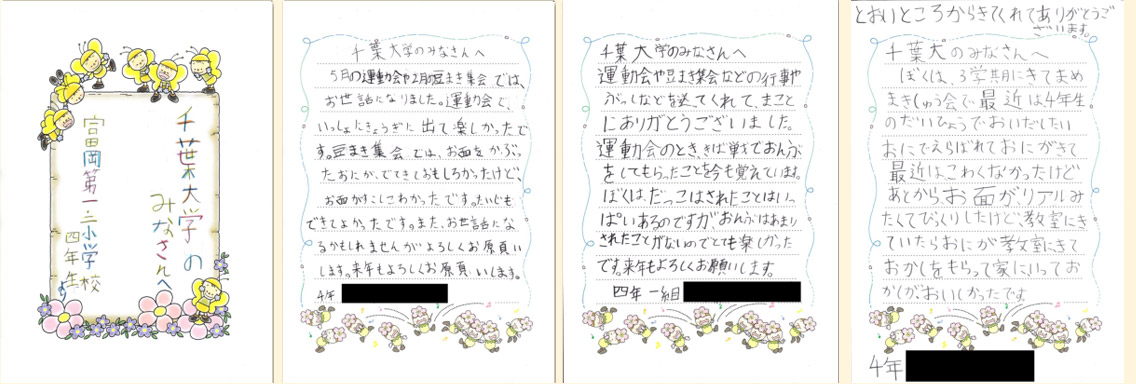 千葉大学の
みなさんへ
富岡第一・二小学校
四年生より
千葉大学のみなさんへ
5月の運動会や2月の豆まき集会では、
お世話になりました。運動会で、
いっしょにきょうぎに出て楽しかったで
す。豆まき集会では、お面をかぶっ
たおにが、でてきておもしろかったけど、
お面がすこしこわかったです。
できてよかったです。また、お世話にな
るかもしれませんがよろしくお願い
します。来年もよろしくお願いします。
4年
千葉大学のみなさんへ
運動会や豆まき集会などの行事や
ぶっしなどを送てくれて、まこと
にありがとうございました。
運動会のとき、きば戦でおんぶ
をしてもらったことを今も覚えています。
ぼくは、だっこはされたことはいっ
ぱいあるのですが、おんぶはあまり
されたことがないのでとても楽しかった
です。来年もよろしくお願いします。
四年一組
とおいところからきてくれてありがとうご
ざいます。
千葉大のみなさんへ
ぼくは、3学期にきてまめ
まきしゅう会で最近は4年生
のだいひょうでおいだしたい
おにでえらばれておにがきて
最近はこわくなかったけど
あとから、お面が、リアルみ
たくてびっくりしたけど、教室にき
ていたらおにが教室にきて
おかしをもらって家にいってお
かしが、おいしかったです。
4年